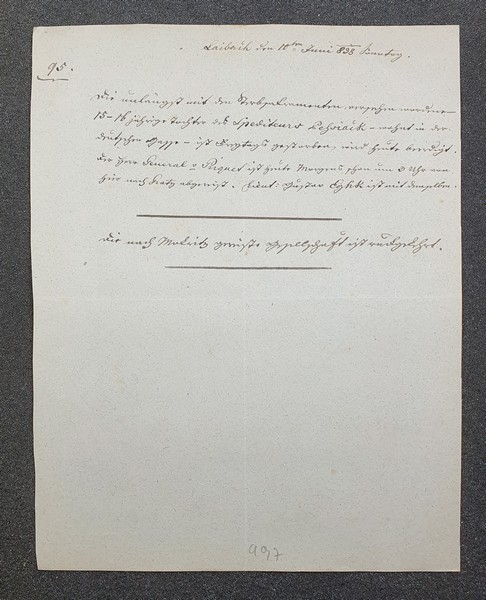 Laibach den 10ten Juni 838 Sontag.
95.
Die unlängst mit den Sterbsakramenten versehen wordene
15-16 jährige Tochter des Spediteurs – wohnt in der
deutschen Gasse – ist Freytags gestorben, und heute beerdigt.
Der Herr General v Piquet ist heute Morgens schon um 3 Uhr von
hier nach Gratz abgereist. Lieut: Gustav ist mit demselben.
Die nach Mokritz gereiste Gesellschaft ist rückgekehrt.
497